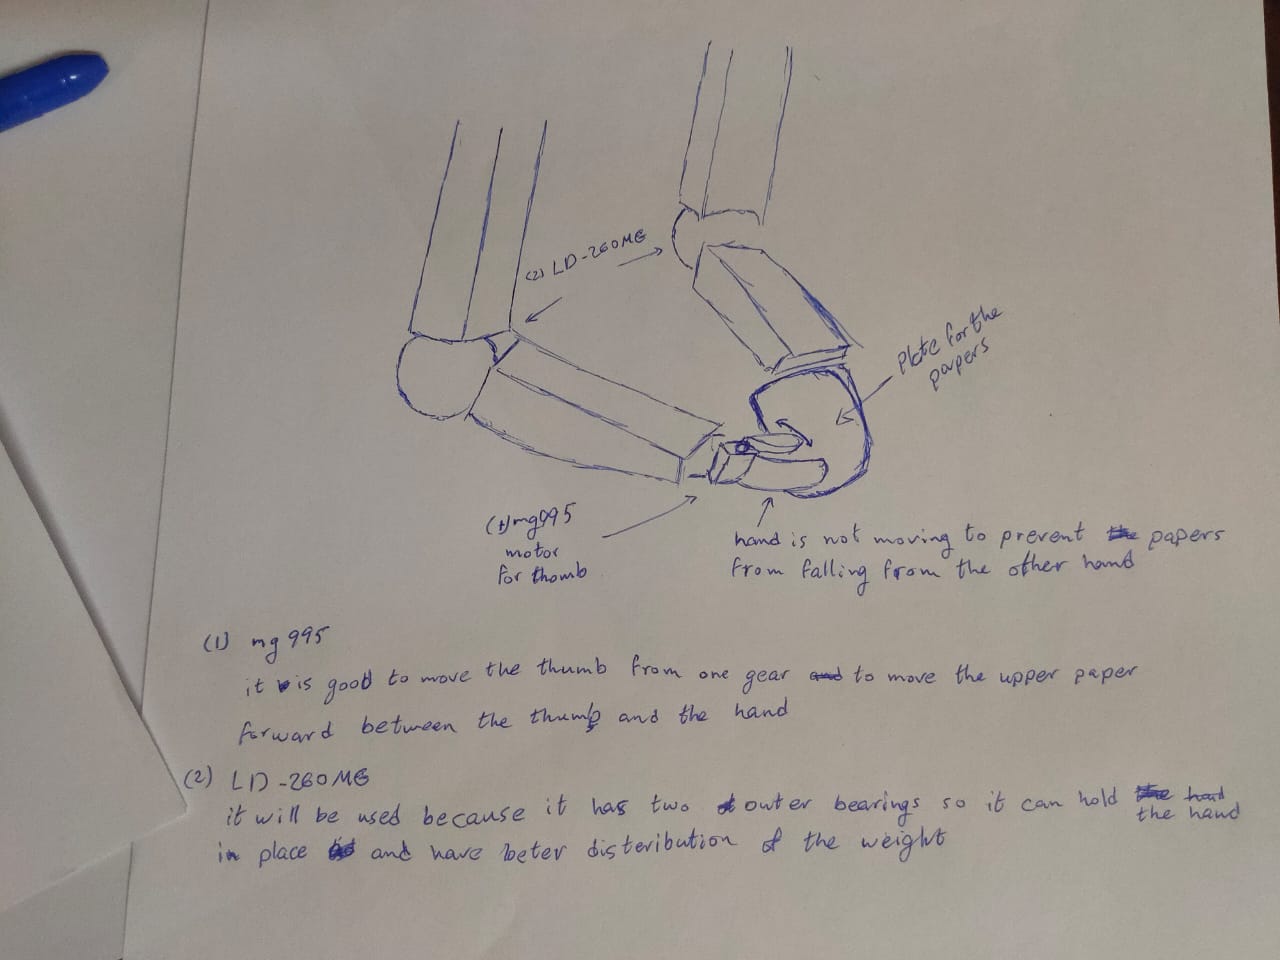 (2) LD-260MG
plate for the
papers
(1) mg995
motor
for thomb
hand is not moving to prevent papers
from falling from the other hand
(1) mg 995
it is good to move the thumb from one gear to move the upper paper
forward between the thump and the hand
(2) LD-260MG
it will be used because it has two outer bearings so it can hold
the hand
in place and have beter disteribution of the weight